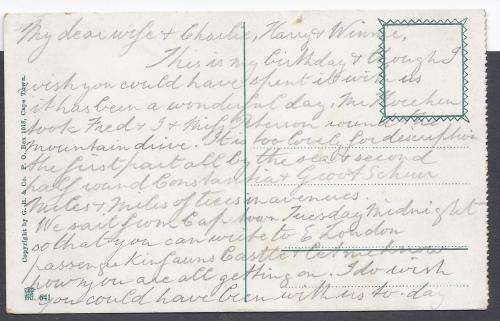 My dear wife & Charlie, Harry & Winnie,
This is my birthday & though I
wish you could have spent it with us
it has been a wonderful day, Mr
took Fred & I & Miss round
mountain drive. It is too lovely for description
the first part all by the sea & second
half round Constantia & Groot Schuur
Miles & Miles of trees in avenues.
We sail from Cape Town Tuesday midnight
so that you can write to E London
passenger Kinfauns Castle & let me know
how you are all getting on. I do wish
you could have been with us to-day
Copyright by G. B. & Co. P. O. Box 1015, Cape Town.
641